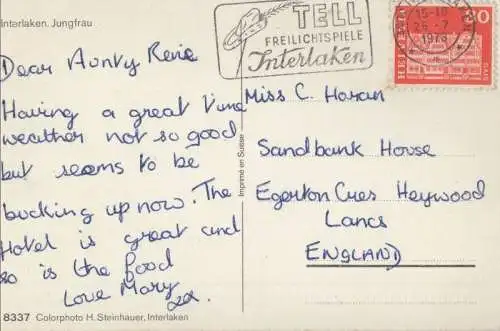 Interlaken. Jungfrau
TELL
FREILICHTSPIELE
Interlaken
15-18
26.-7
1978
HELVETIA
80
Dear Aunty Reie
Having a great time
weather not so good
but seems to be
bucking up now. The
Hotel is great and
so is the food
Love Mary
xx.
Imprimé en Suisse
Miss C. Horan
Sandbank House
Egerton Cres Heywood
Lancs
ENGLAND
8337 Colorphoto H. Steinhauer, Interlaken